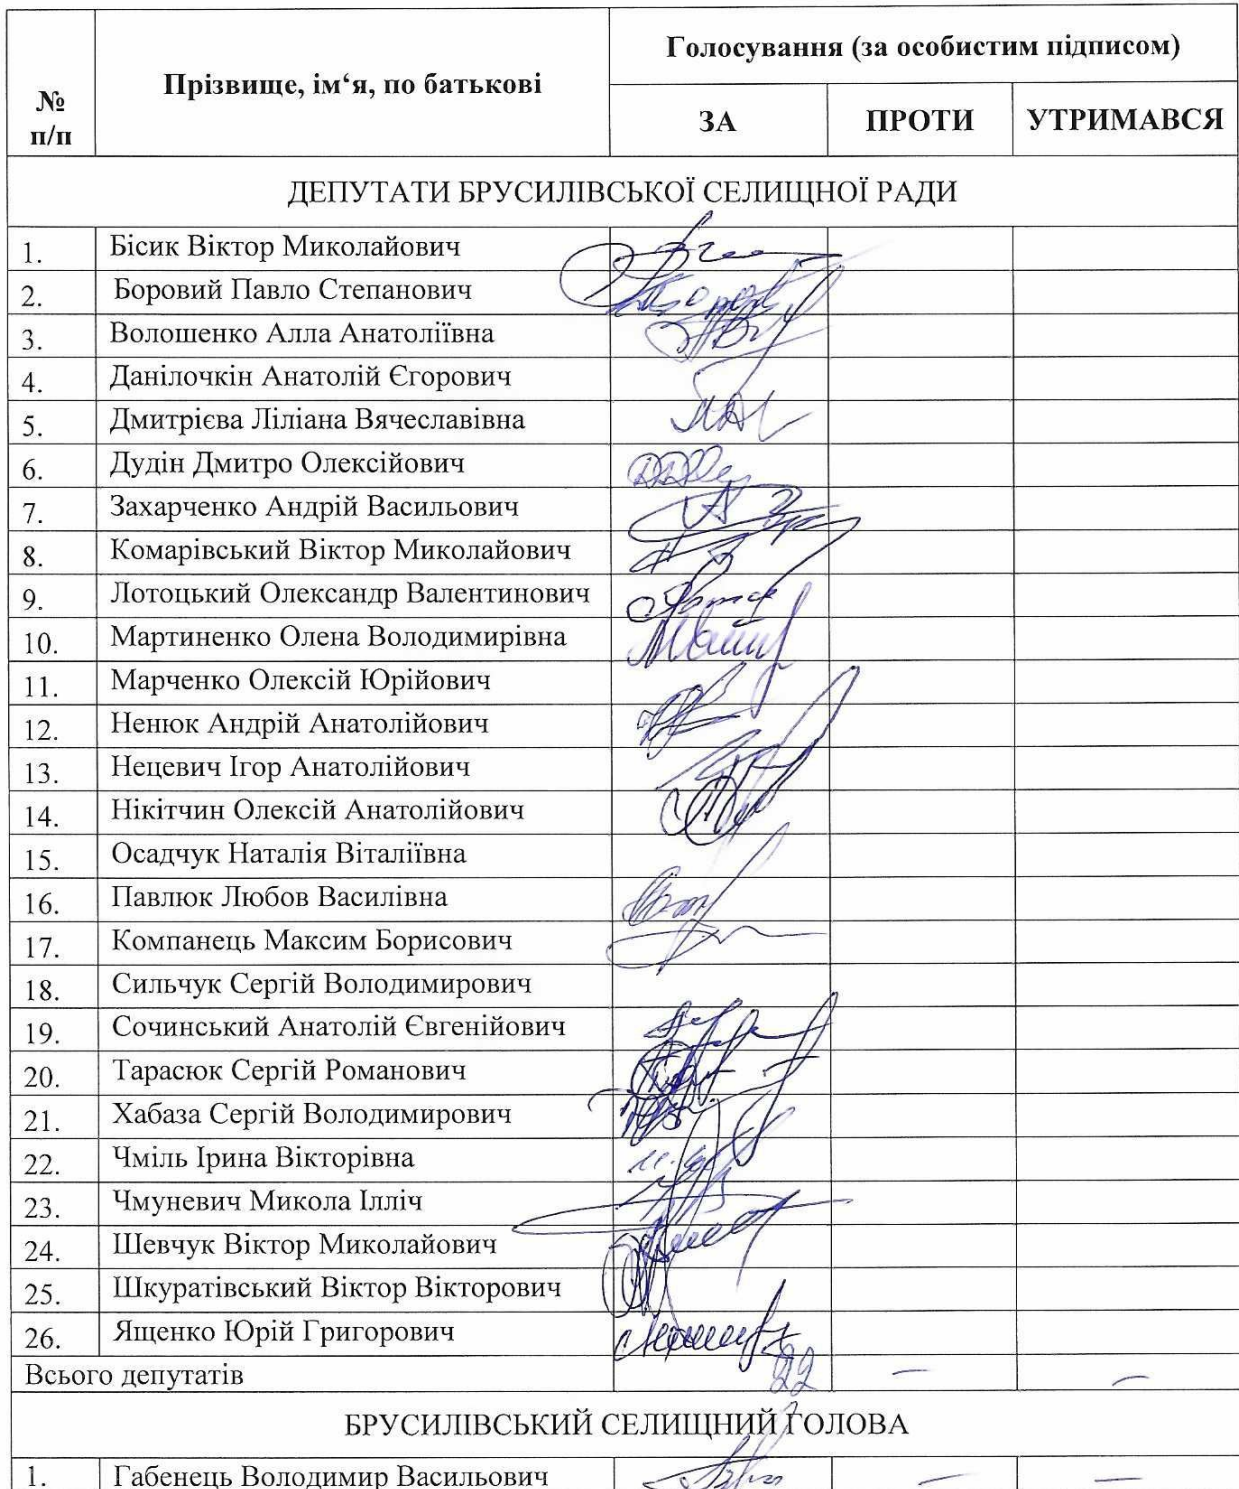 № п/п Прізвище, ім‘я, по батькові Голосування (за особистим підписом)
ЗА ПРОТИ УТРИМАВСЯ
ДЕПУТАТИ БРУСИЛІВСЬКОЇ СЕЛИЩНОЇ РАДИ
1. Бісик Віктор Миколайович
2. Боровий Павло Степанович
3. Волошенко Алла Анатоліївна
4. Данілочкін Анатолій Єгорович
5. Дмитрієва Ліліана Вячеславівна
6. Дудін Дмитро Олексійович
7. Захарченко Андрій Васильович
8. Комарівський Віктор Миколайович
9. Лотоцький Олександр Валентинович
10. Мартиненко Олена Володимирівна
11. Марченко Олексій Юрійович
12. Ненюк Андрій Анатолійович
13. Нецевич Ігор Анатолійович
14. Нікітчин Олексій Анатолійович
15. Осадчук Наталія Віталіївна
16. Павлюк Любов Василівна
17. Компанець Максим Борисович
18. Сильчук Сергій Володимирович
19. Сочинський Анатолій Євгенійович
20. Тарасюк Сергій Романович
21. Хабаза Сергій Володимирович
22. Чміль Ірина Вікторівна
23. Чмуневич Микола Ілліч
24. Шевчук Віктор Миколайович
25. Шкуратівський Віктор Вікторович
26. Ященко Юрій Григорович
Всього депутатів 22 – –
БРУСИЛІВСЬКИЙ СЕЛИЩНИЙ ГОЛОВА
1. Габенець Володимир Васильович – –